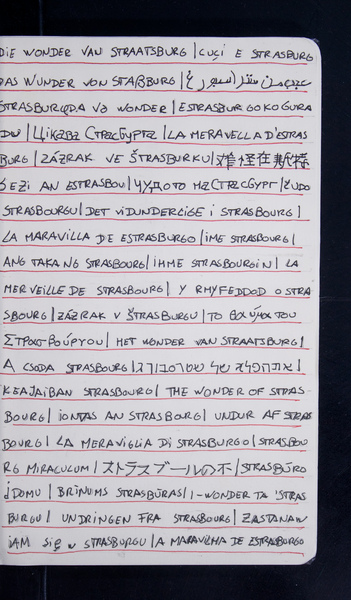 DIE WONDER VAN STRAATSBURG | CUÇI E STRASBURG
DAS WUNDER VON STAßBURG |
STRASBURQDA VƏ WONDER | ESTRASBURGOKO GURA
DU | Цікавы Страсбургa | LA MERAVELLA D'ESTRAS
BURG | ZÁZRAK VE ŠTRASBURKU | 難怪在斯特
BEZI AN ESTRASBOU | ЧУДОТО НА СТРАСБУРГ | ČUDO
STRASBOURGU | DET VIDUNDERLIGE I STRASBOURG |
LA MARAVILLA DE ESTRASBURGO | IME STRASBOURG |
ANG TAKA NG STRASBOURG | IHME STRASBOURGIN | LA
MERVEILLE DE STRASBOURG | Y RHYFEDDOD O STRA
SBOURG | ZÁZRAK V ŠTRASBURGU | ΤΟ θαύμα του
Στρασβούργου | HET WONDER VAN STRAATSBURG |
A CSODA STRASBOURG | את הפלא של שטרסבורג |
KEAJAIBAN STRASBOURG | THE WONDER OF STRAS
BOURG | IONTAS AN STRASBOURG | UNDUR AF STRAS
BOURG | LA MERAVIGLIA DI STRASBURGO | STRASBOU
RG MIRACULUM | ストラスブールの不 | STRASBŪRO
ĮDOMU | BRĪNUMS STRASBŪRAS | I-WONDER TA 'STRAS
BURGU | UNDRINGEN FRA STRASBOURG | ZASTANAW
IAM SIĘ W STRASBURGU | A MARAVILHA DE ESTRASBURGO